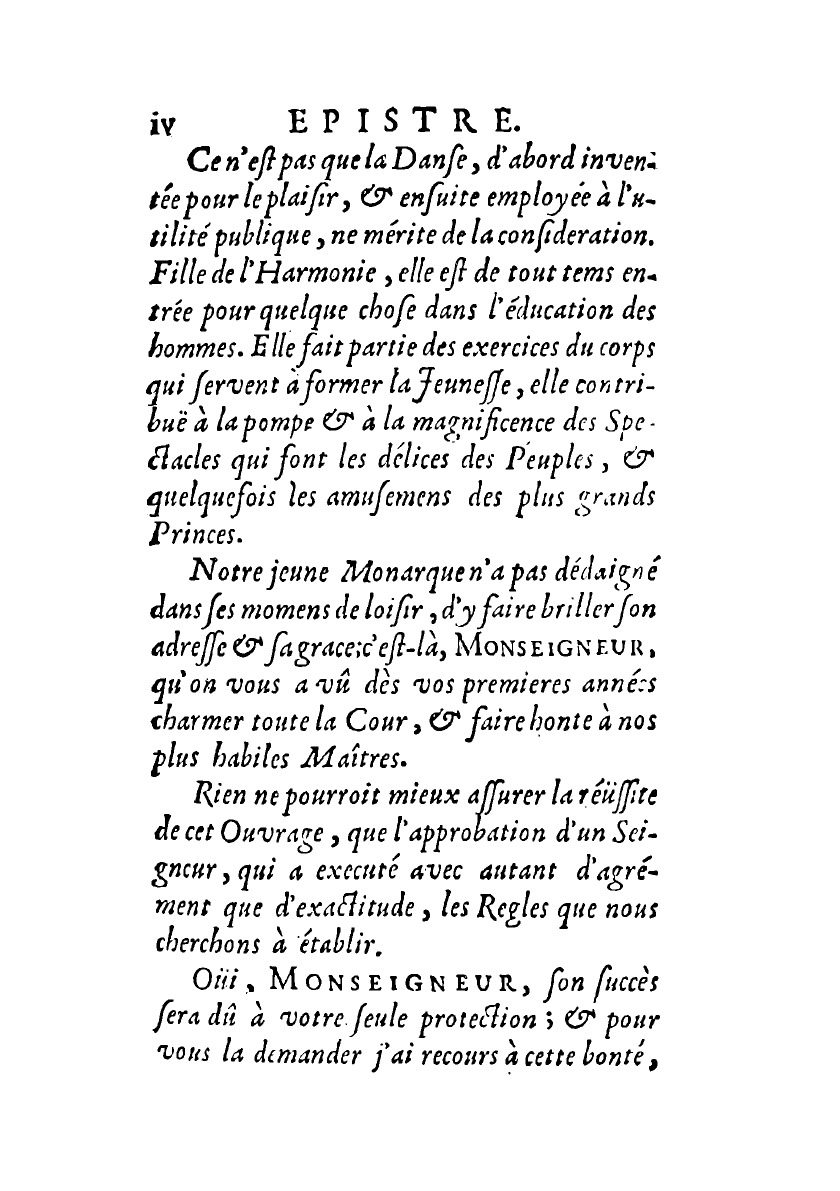 iv EPISTRE.
Ce n'eſt pas que la Danſe, d'abord inven-
tée pour le plaiſir, & enſuite employée à l'u-
tilité publique, ne mérite de la conſideration.
Fille de l'Harmonie, elle eſt de tout tems en-
trée pour quelque choſe dans l'éducation des
hommes. Elle fait partie des exercices du corps
qui ſervent à former la Jeuneſſe, elle contri-
buë à la pompe & à la magnificence des Spe-
ctacles qui font les délices des Peuples, &
quelquefois les amuſemens des plus grands
Princes.
Notre jeune Monarque n'a pas dédaigné
dans ſes momens de loiſir, d'y faire briller ſon
adreſſe & ſa grace; c'eſt-là, MONSEIGNEUR,
qu'on vous a vû dès vos premieres années
charmer toute la Cour, & faire honte à nos
plus habiles Maîtres.
Rien ne pourroit mieux aſſurer la réüſſite
de cet Ouvrage, que l'approbation d'un Sei-
gneur, qui a executé avec autant d'agré-
ment que d'exactitude, les Regles que nous
cherchons à établir.
Oüi, MONSEIGNEUR, ſon ſuccès
ſera dû à votre ſeule protection; & pour
vous la demander j'ai recours à cette bonté,